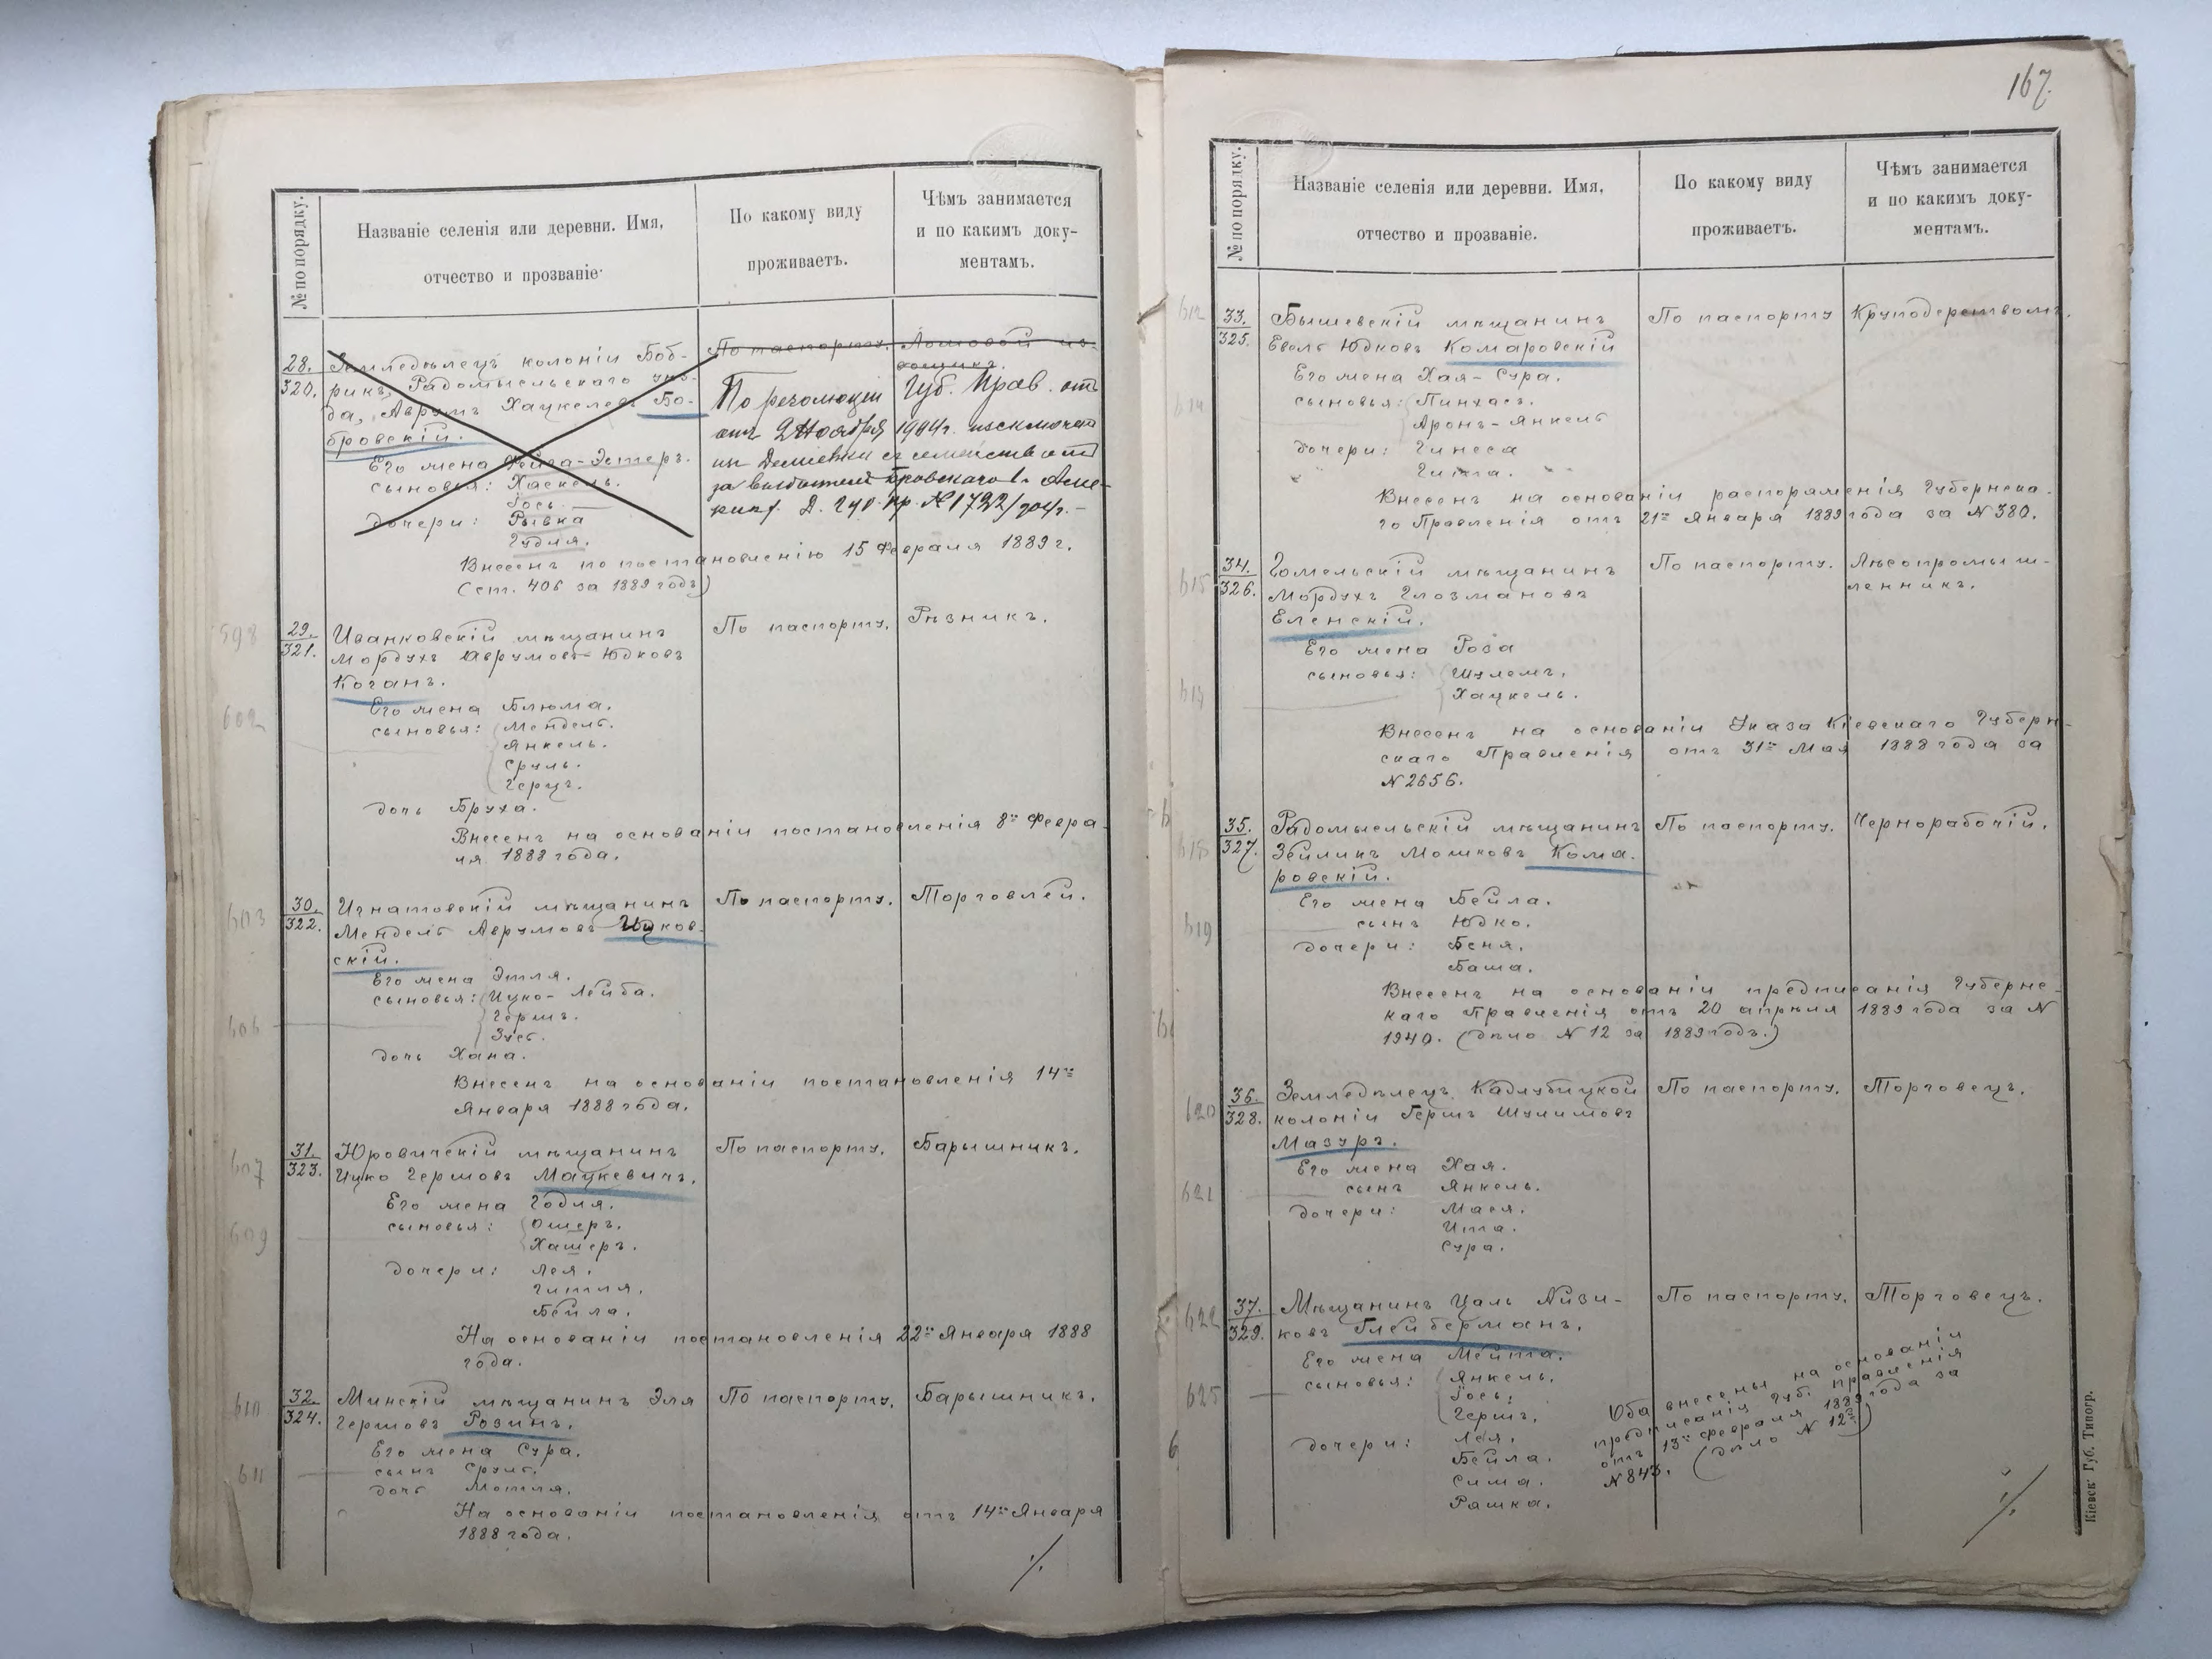 № по порядку.
Названіе селенія или деревни. Имя,
отчество и прозваніе.
По какому виду
проживаетъ.
Чѣмъ занимается
и по какимъ доку-
ментамъ.
28.
320.
Земледѣлецъ колоніи Боб-
рикъ, Радомысельскаго уѣз-
да, Аврумъ Хацкелевъ Бо-
бровскій.
Его жена Фейга-Эстеръ.
сыновья: Хаскель.
Іось.
дочери: Рывка
Гудля.
По паспорту.
Ломовой из-
вощикъ.
По резолюціи Губ. Прав. отъ
отъ 2 Ноября 1904г. исключенъ
изъ съ семействомъ
за Бровскаго въ Аме-
рику. Д. Губ. пр. № 1722/904г.
Внесенъ по постановленію 15 Февраля 1889 г.
(ст. 406 за 1889 годъ)
598
29.
321.
Иванковскій мѣщанинъ
Мордухъ Аврумовъ-Юдковъ
Коганъ.
По паспорту.
Рѣзникъ.
Его жена Блюма.
602
сыновья: Мендель.
Янкель.
Сруль.
Герцъ.
дочь Бруха.
Внесенъ на основаніи постановленія 8го Февра-
ля 1888 года.
603
30.
322.
Игнатовскій мѣщанинъ
Мендель Аврумовъ Ицков-
скій.
По паспорту.
Торговлей.
Его жена Этля.
сыновья: Ицко-Лейба.
Гершъ.
606
Зусь.
дочь Хана.
Внесенъ на основаніи постановленія 14го
Января 1888 года.
607
31.
323.
Юровичскій мѣщанинъ
Ицко Гершовъ Мацкевичъ.
По паспорту.
Барышникъ.
Его жена Годля.
609
сыновья: Ошеръ.
Хашеръ.
дочери: Лея.
Гитля.
Бейла.
На основаніи постановленія 22го Января 1888
года.
610
32.
324.
Минскій мѣщанинъ Эля
Гершовъ Розинъ.
По паспорту.
Барышникъ.
Его жена Сура.
611
сынъ Сруль.
дочь Мотля.
На основаніи постановленія отъ 14го Января
1888 года.
167.
№ по порядку.
Названіе селенія или деревни. Имя,
отчество и прозваніе.
По какому виду
проживаетъ.
Чѣмъ занимается
и по какимъ доку-
ментамъ.
612
33.
325.
Бышевскій мѣщанинъ
Евель Юдковъ Комаровскій
По паспорту
Круподерствомъ.
Его жена Хая-Сура.
614
сыновья: Пинхасъ.
Аронъ-Янкель
дочери: Гинеса
Гитта.
Внесенъ на основаніи распоряженія Губернска-
го Правленія отъ 21го Января 1889 года за N 380.
615
34.
326.
Гомельскій мѣщанинъ
Мордухъ Глозмановъ
Еленскій.
По паспорту.
Лѣсопромыш-
ленникъ.
Его жена Роза
сыновья: Шулемъ.
Хацкель.
Внесенъ на основаніи Указа Кіевскаго Губерн-
скаго Правленія отъ 31го Мая 1888 года за
N 2656.
618
35.
327.
Радомысельскій мѣщанинъ
Зейликъ Мошковъ Кома-
ровскій.
По паспорту.
Чернорабочій.
Его жена Бейла.
619
сынъ Юдко.
дочери: Беня.
Баша.
Внесенъ на основаніи предписанія Губернс-
каго Правленія отъ 20 апрѣля 1889 года за N
1940. (дѣло N 12 за 1889 годъ.)
620
36.
328.
Земледѣлецъ Кадлубицкой
колоніи Гершъ Шулимовъ
Мазуръ.
По паспорту.
Торговецъ.
Его жена Хая.
621
сынъ Янкель.
дочери: Мася.
Ита.
Сура.
622
37.
329.
Мѣщанинъ Цаль Айзи-
ковъ Глейберманъ.
По паспорту.
Торговецъ.
Его жена Мейта.
625
сыновья: Янкель.
Іось.
Гершъ.
дочери: Лея.
Бейла.
Сима.
Рашка.
Оба внесены на основаніи
предписанія Губ. Правленія
отъ 13го февраля 1889 года за
N 843. (дѣло N 12)
Кіевск. Губ. Типогр.